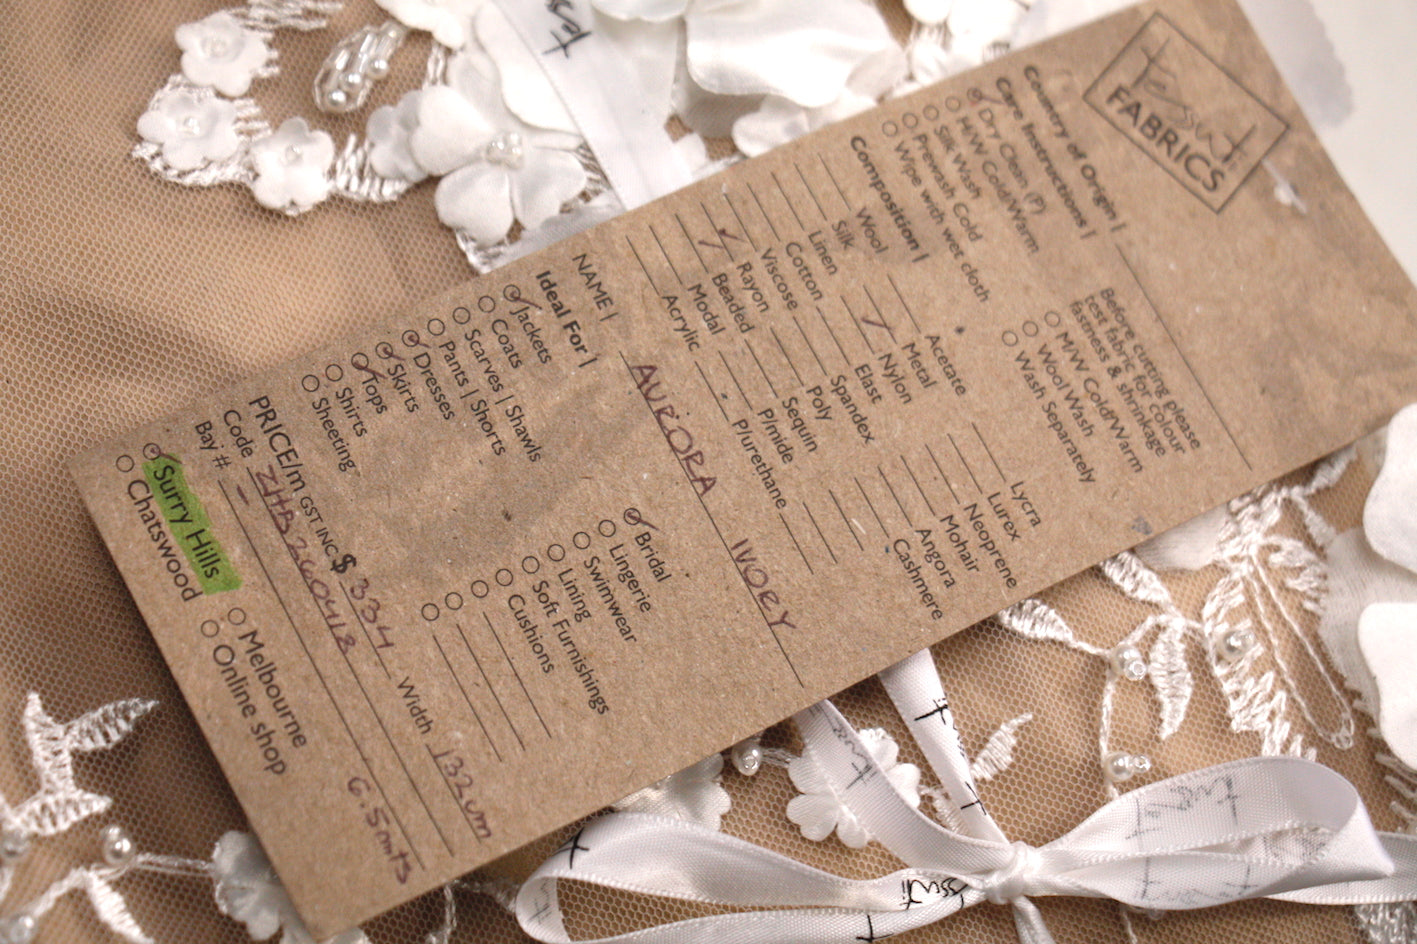 Tessuti
FABRICS
Country of Origin |
Care Instructions |
Dry Clean (P)
H/W Cold/Warm
Silk Wash
Prewash Cold
Wipe with wet cloth
Before cutting please
test fabric for colour
fastness & shrinkage
M/W Cold/Warm
Wool Wash
Wash Separately
Composition |
Wool
Silk
Linen
Cotton
Viscose
Rayon
Beaded
Modal
Acrylic
Acetate
Metal
Nylon
Elast
Spandex
Poly
Sequin
P/mide
P/urethane
Lycra
Lurex
Neoprene
Mohair
Angora
Cashmere
NAME | AURORA IVORY
Ideal For |
Jackets
Coats
Scarves | Shawls
Pants | Shorts
Dresses
Skirts
Tops
Shirts
Sheeting
Bridal
Lingerie
Swimwear
Lining
Soft Furnishings
Cushions
PRICE/m GST INC $ 334 Width 132cm
Code ZHB260418
Bay # - 6.5mts
Surry Hills
Melbourne
Chatswood
Online shop
Tessuti
Tessuti